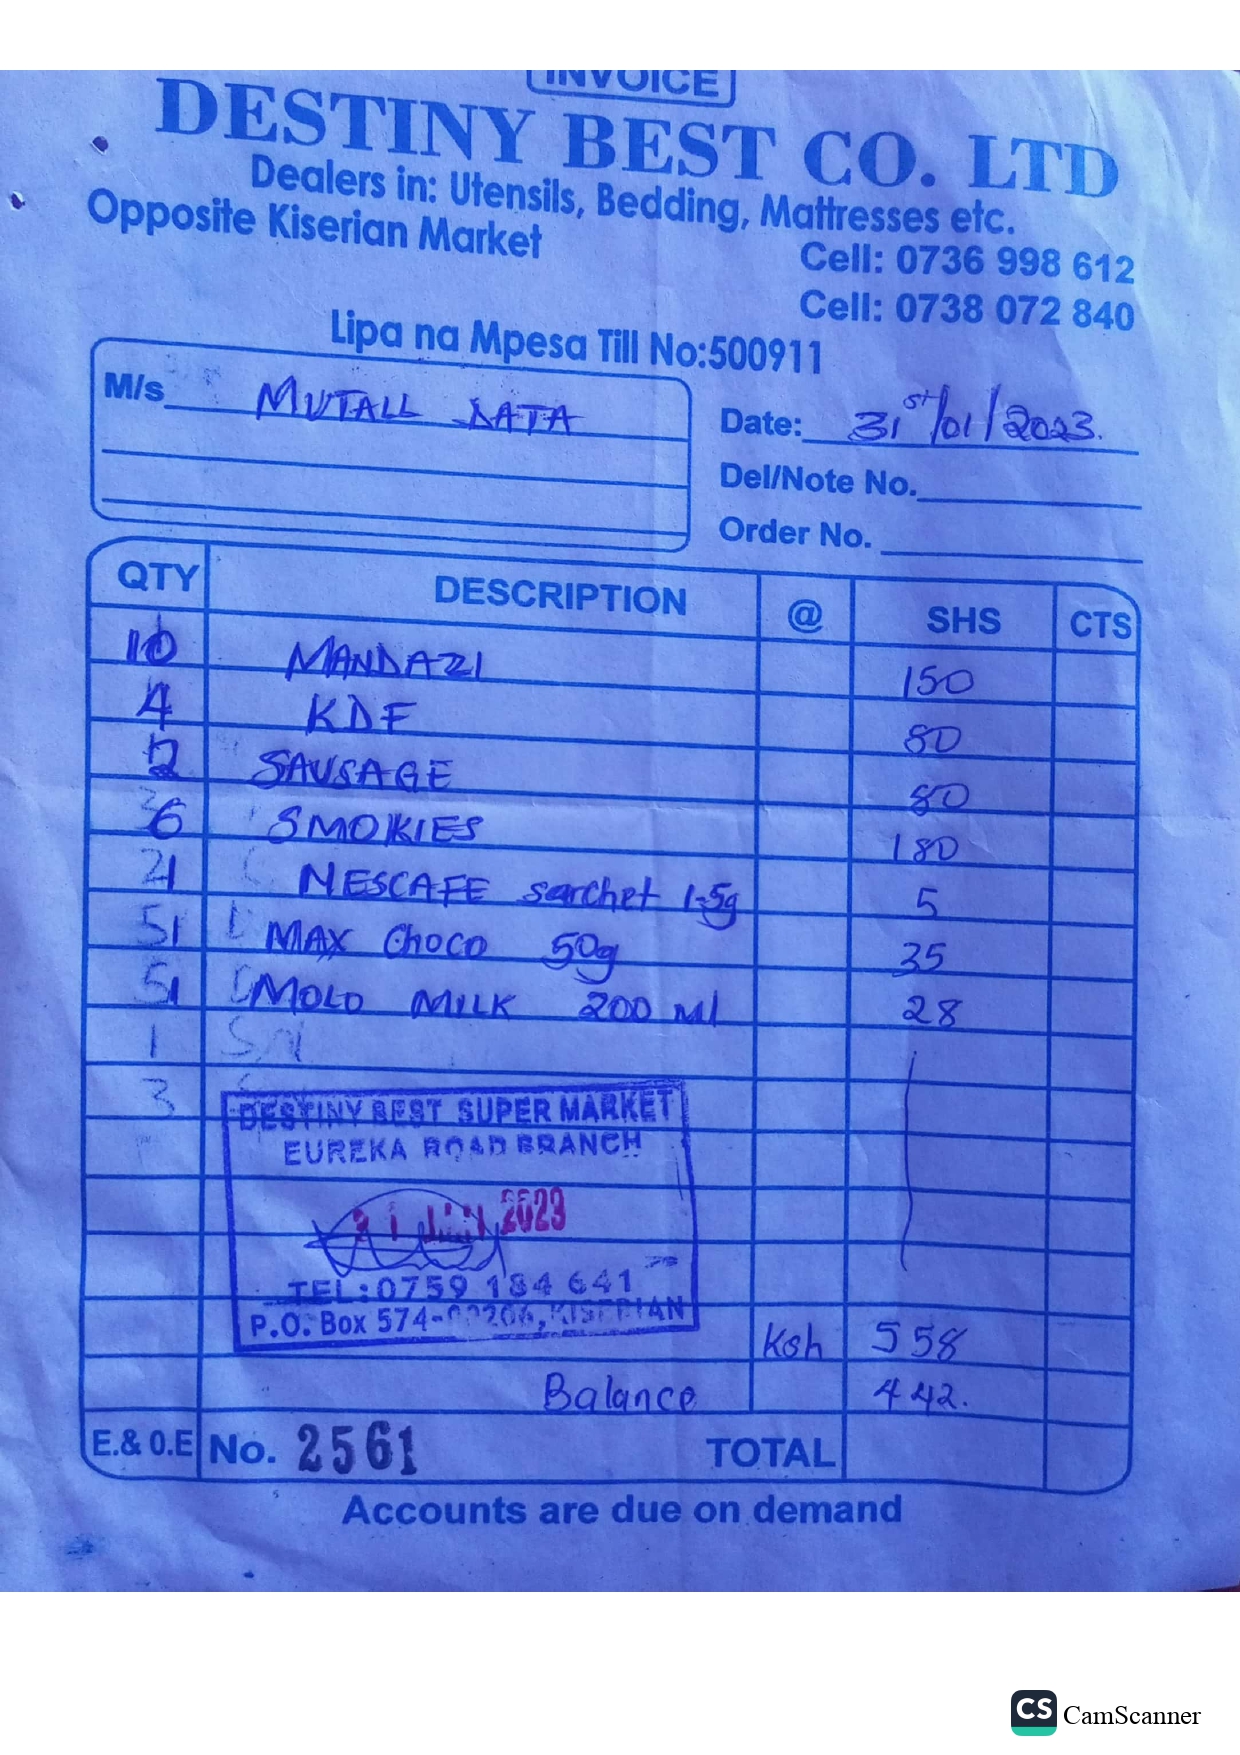 INVOICE
DESTINY BEST CO. LTD
Dealers in: Utensils, Bedding, Mattresses etc.
Opposite Kiserian Market
Cell: 0736 998 612
Cell: 0738 072 840
Lipa na Mpesa Till No:500911
M/s MUTALL DATA
Date: 31st/01/2023.
Del/Note No.
Order No.
QTY DESCRIPTION @ SHS CTS
10 MANDAZI 150
4 KDF 80
2 SAUSAGE 80
6 SMOKIES 180
1 NESCAFE sarchet 1.5g 5
1 MAX Choco 50g 35
1 MOLO MILK 200 Ml 28
DESTINY BEST SUPER MARKET
EUREKA ROAD BRANCH
2023
TEL:0759 184 641
P.O. Box 574-00206, KISERIAN
Ksh 558
Balance 442.
E.& O.E No. 2561 TOTAL
Accounts are due on demand
CS CamScanner